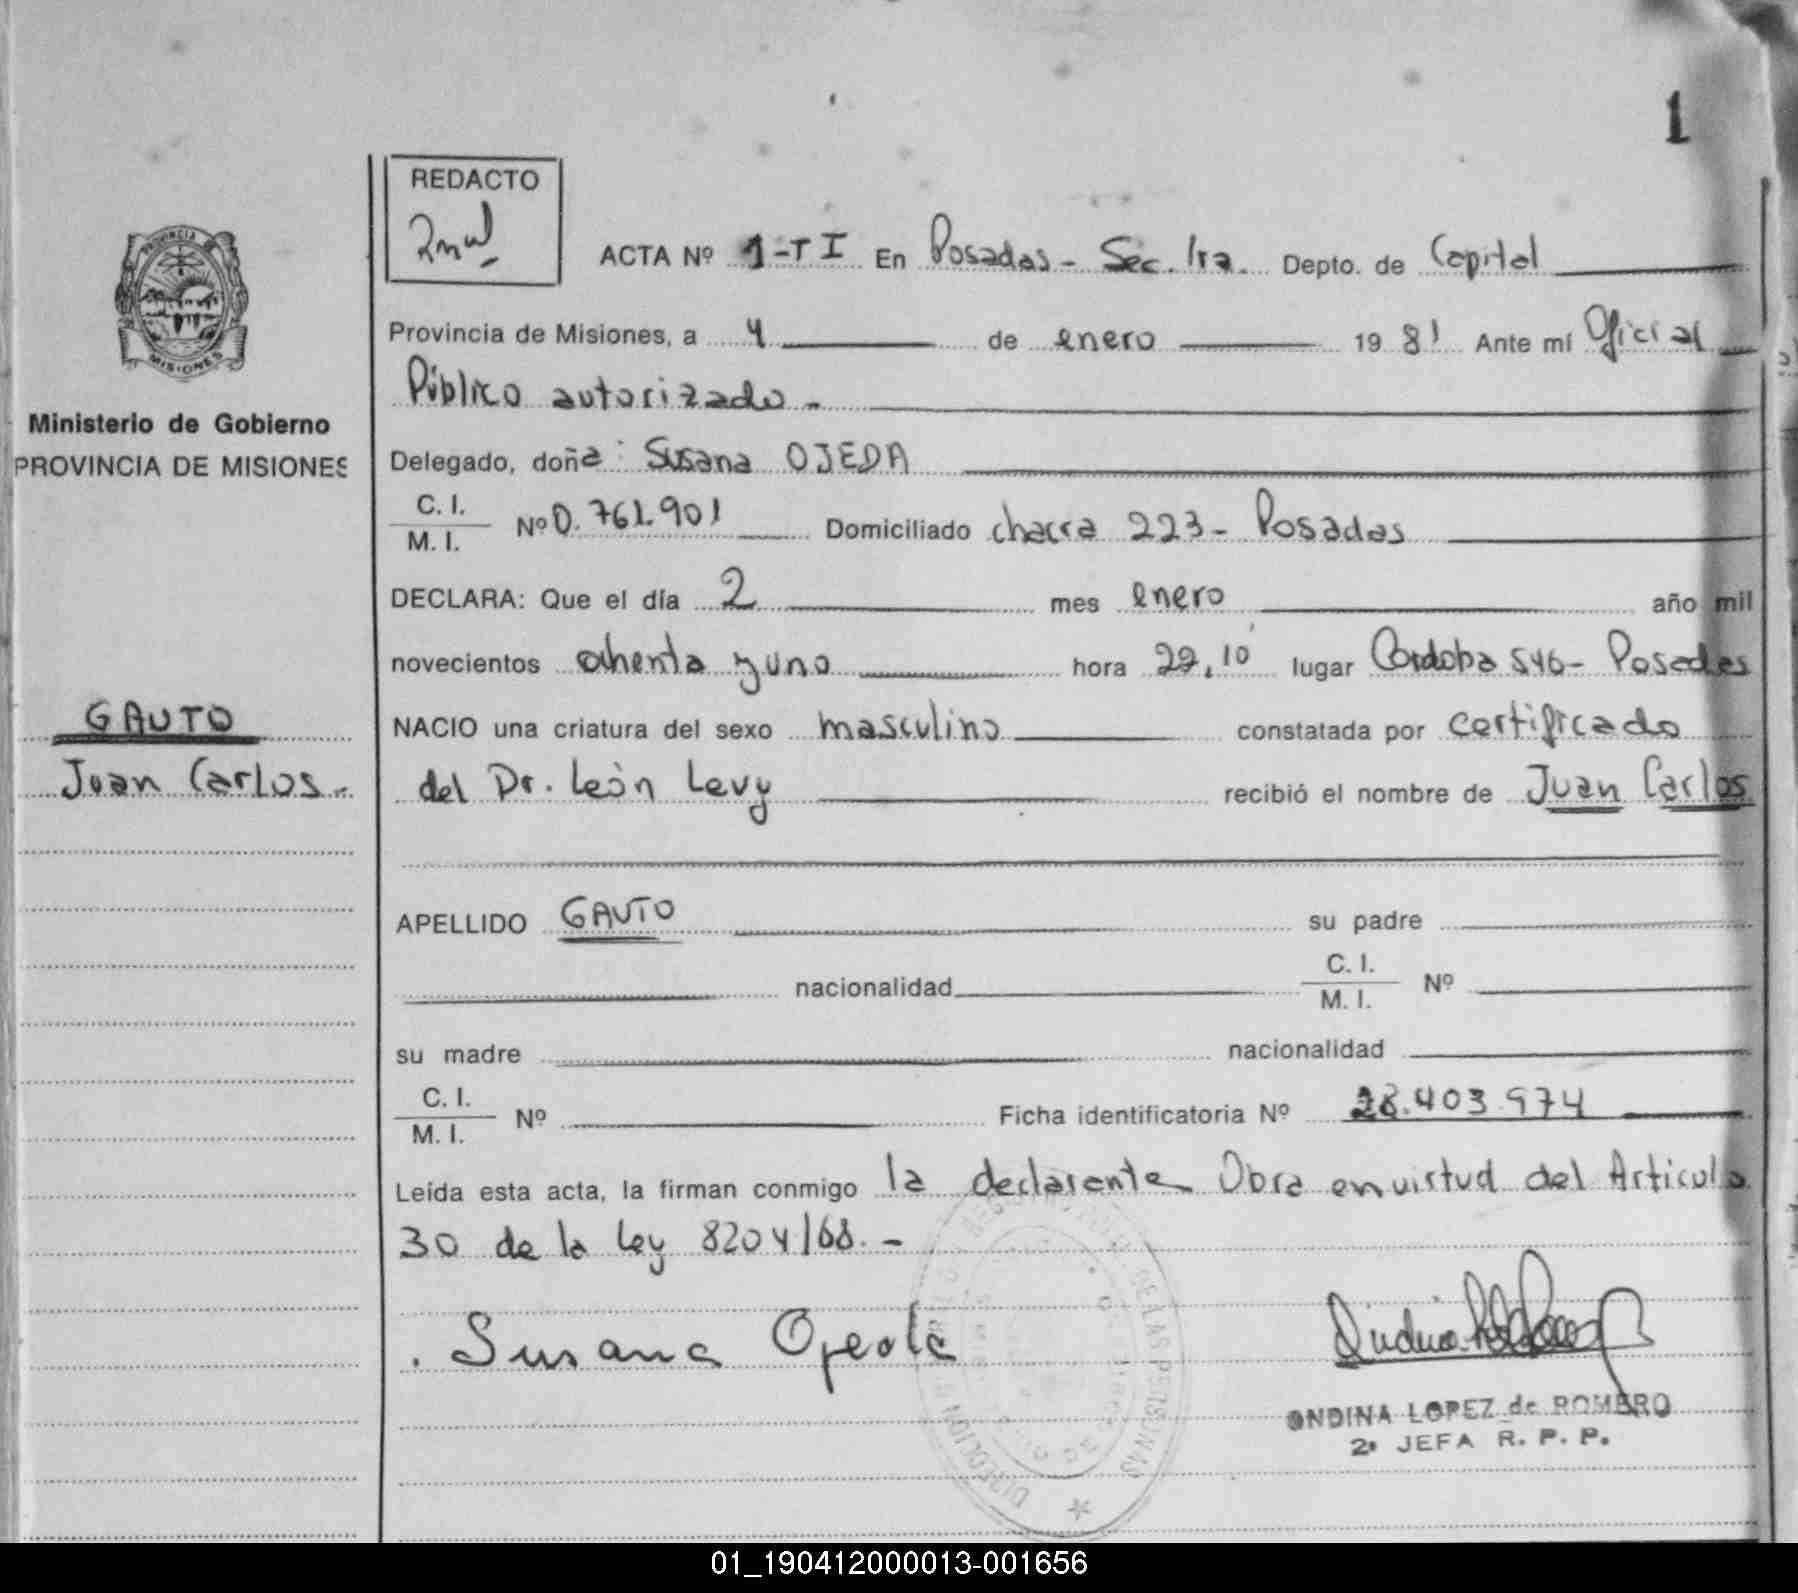 1
REDACTO
PROVINCIA
MISIONES
Ministerio de Gobierno
PROVINCIA DE MISIONES
GAUTO
Juan Carlos.-
ACTA Nº 1-TI En Posadas - Sec. 1ra. Depto. de Capital
Provincia de Misiones, a 4 de enero 1981 Ante mí Oficial
Público autorizado -
Delegado, doña: Susana OJEDA
C. I.
M. I. Nº 0.761.901 Domiciliado chacra 223 - Posadas
DECLARA: Que el día 2 mes enero año mil
novecientos ochenta y uno hora 22,10 lugar Cordoba 546 - Posadas
NACIO una criatura del sexo masculino constatada por certificado
del Dr. León Levy recibió el nombre de Juan Carlos
APELLIDO GAUTO su padre
nacionalidad C. I.
M. I. Nº
su madre nacionalidad
C. I.
M. I. Nº Ficha identificatoria Nº 28.403.974
Leída esta acta, la firman conmigo la declarante Obra en virtud del Articulo
30 de la ley 8204/68. -
Susana Ojeda
ONDINA LOPEZ de ROMERO
2ª JEFA R. P. P.
01_190412000013-001656